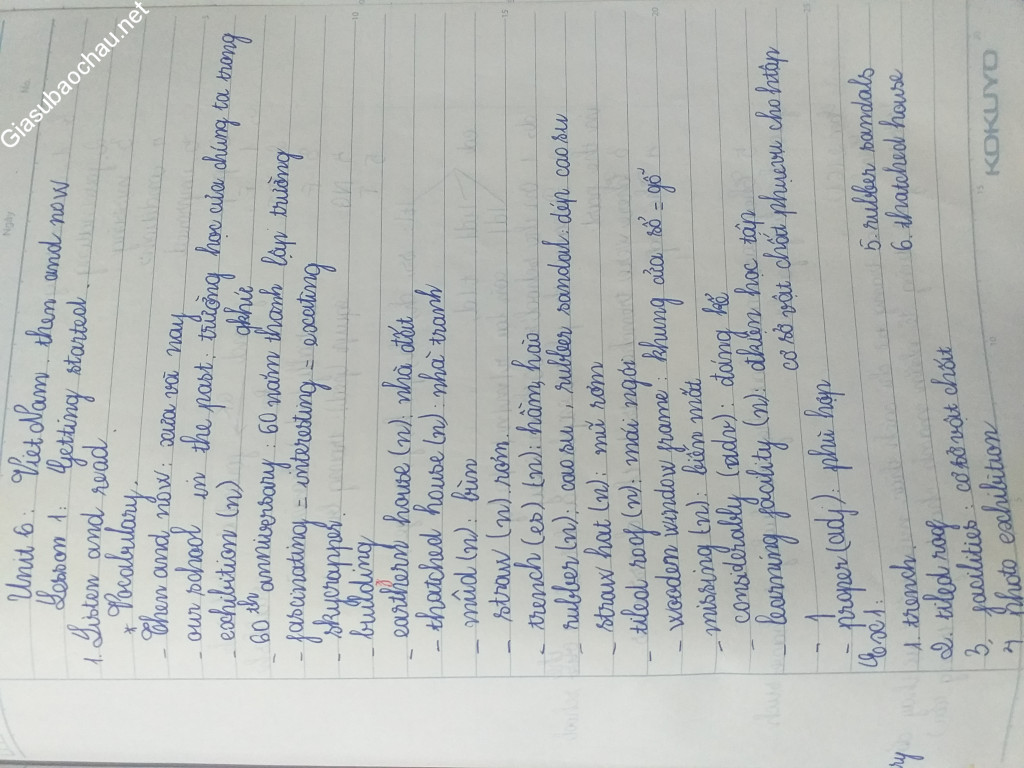 Giasubaochau.net
Ngày
No.
Unit 6: Viet Nam: then and now
Lesson 1: Getting started
1. Listen and read
* Vocabulary.
- Then and now: xưa và nay
- our school in the past: trường học của chúng ta trong qkhứ
- exhibition (n)
- 60th anniversary: 60 năm thành lập trường
- fascinating = interesting = exciting
- skyscrapper:
- building
- earthern house (n): nhà đất
- thatched house (n): nhà tranh
- mud (n): bùn
- straw (n) rơm.
- trench (es) (n): hầm, hào
- rubber (n): cao su, rubber sandal: dép cao su
- straw hat (n): mũ rơm
- tiled roof (n): mái ngói
- wooden window frame: khung cửa sổ = gỗ
- missing (n): biến mất
- considerably (adv): đáng kể
- learning facility (n): thiện học tập
cơ sở vật chất phươu cho httập
- proper (adj): phù hợp
Exe1:
1. trench. 5. rubber sandals
2. tiled roof 6. thratched house
3, facilities: cơ sở vật chất
4 photo exhilition
KOKUYO